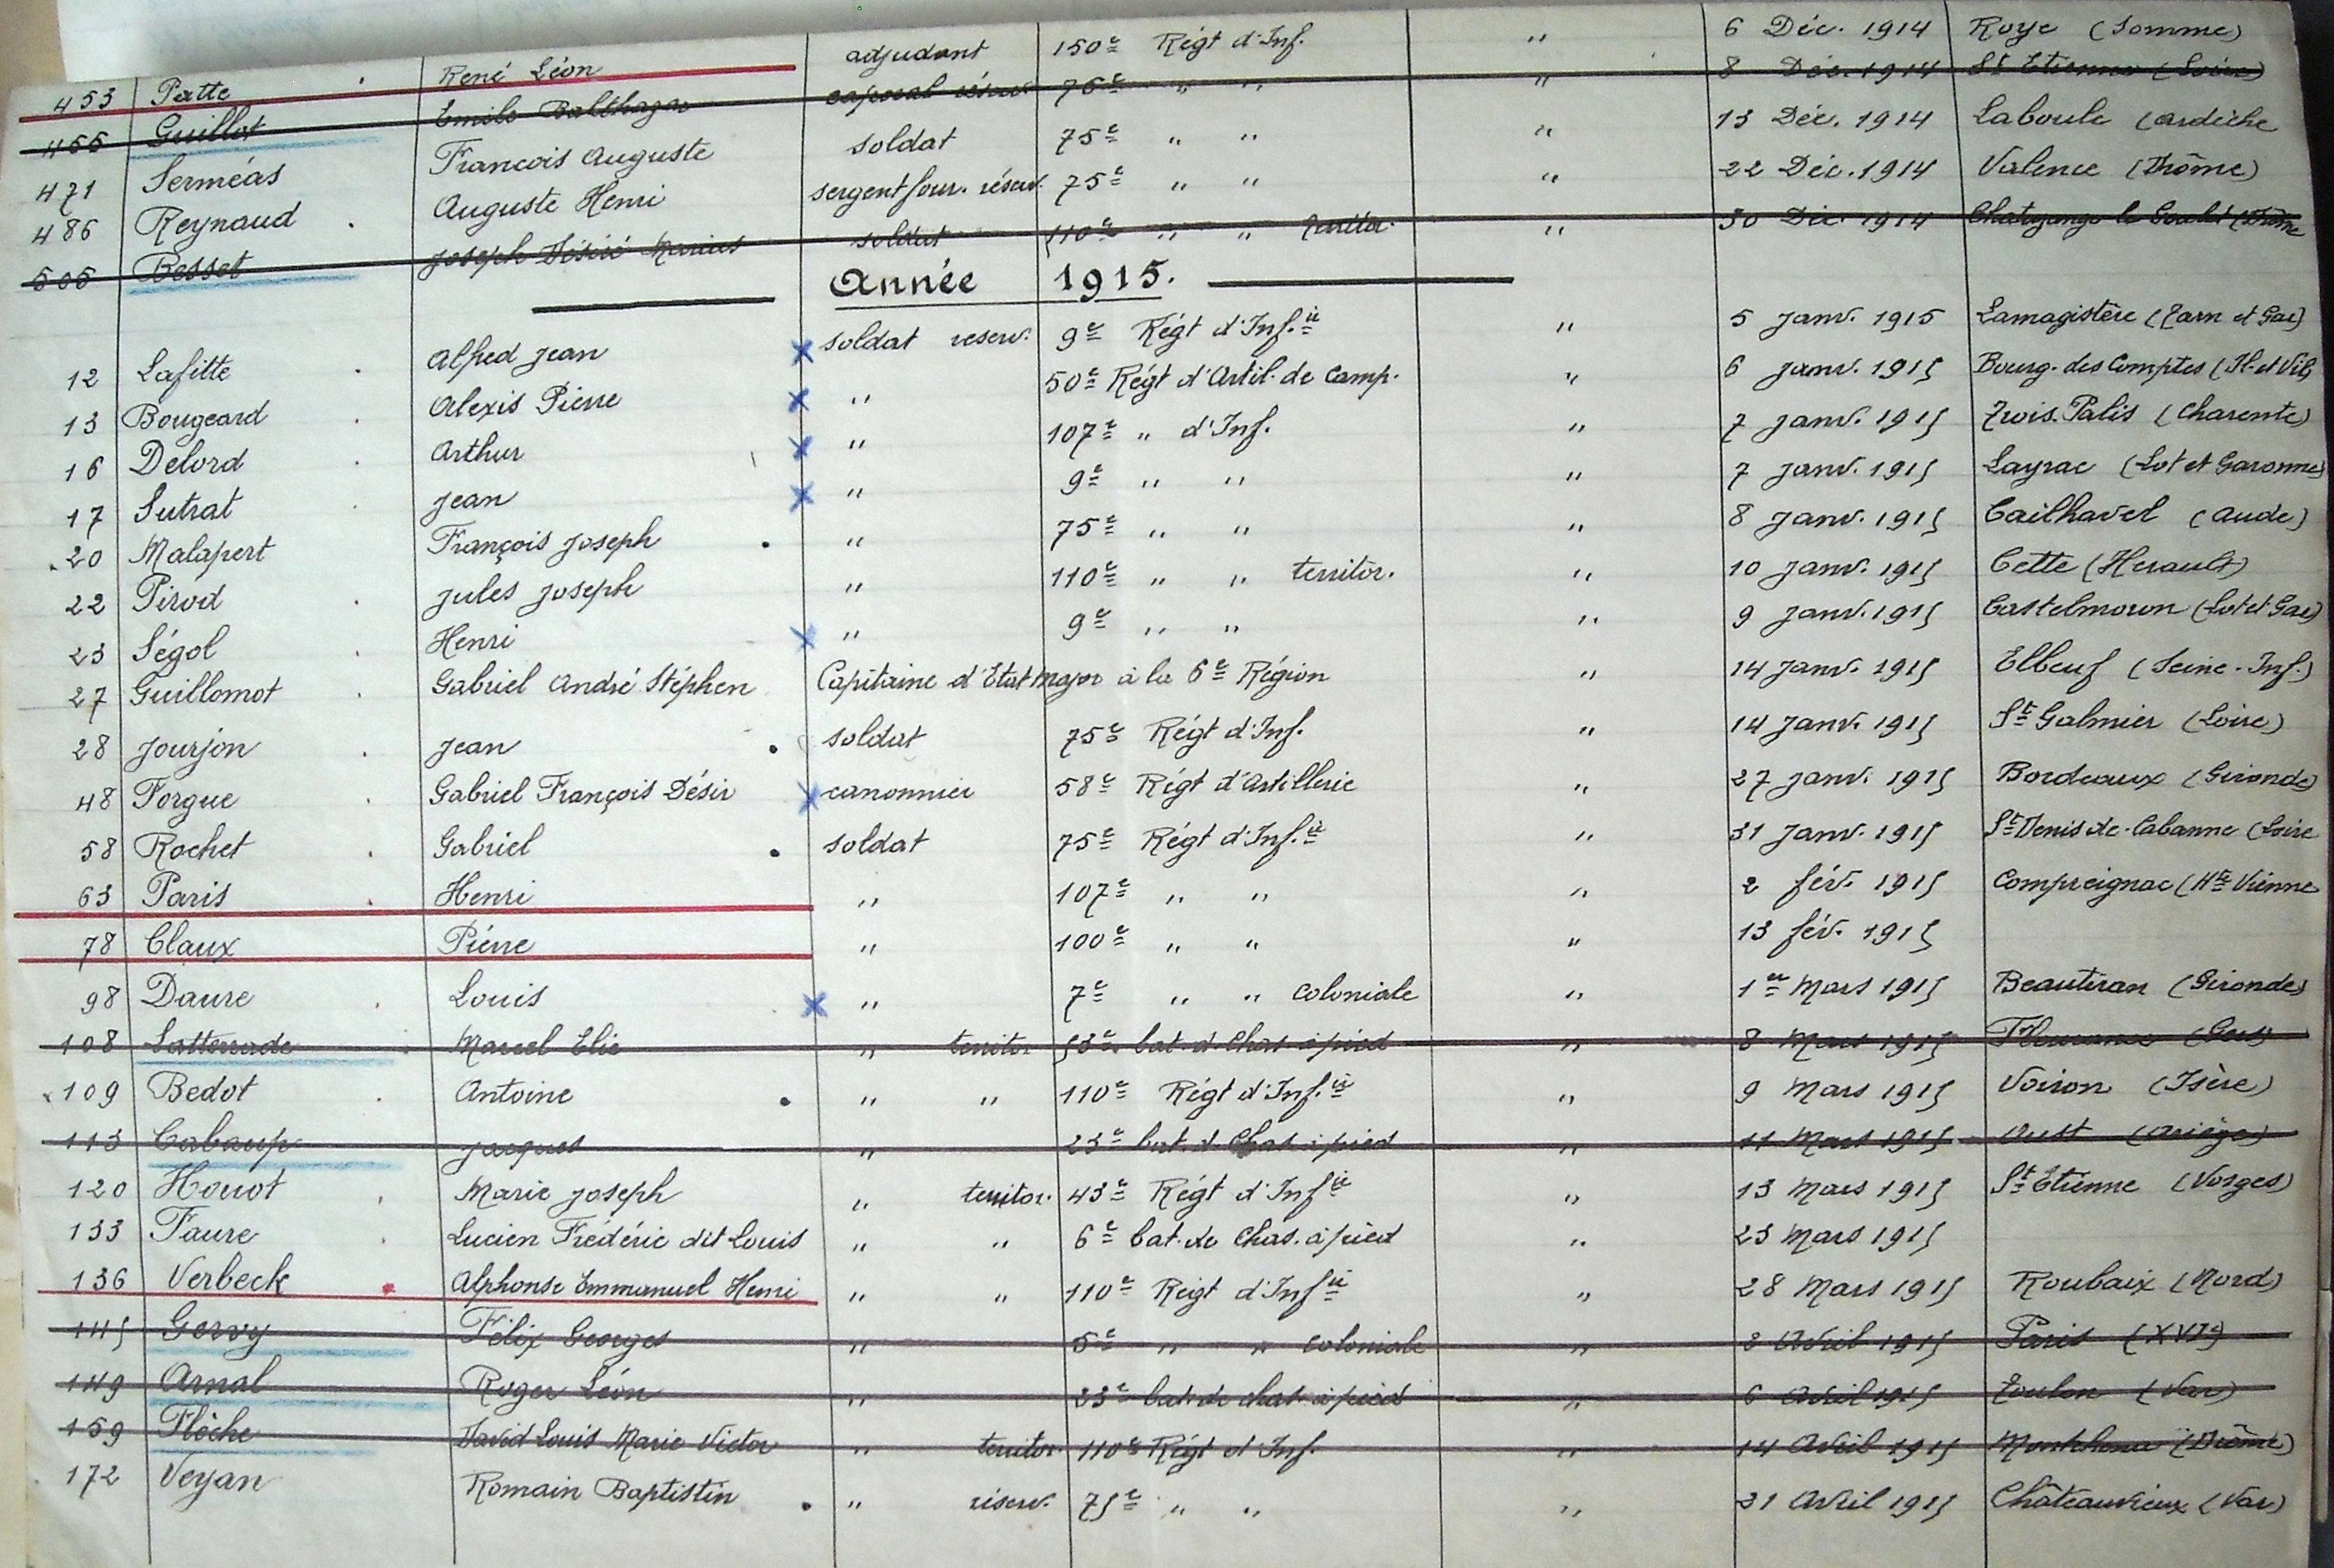 453 Patte René Léon adjudant 150e Régt d'Inf. " 6 Déc. 1914 Roye (Somme)
455 Guillot Emile Balthazar caporal réserv. 76e " " " 8 Déc. 1914 St Etienne (Loire)
471 Serméas Francois Auguste soldat 75e " " " 13 Déc. 1914 Laboule (Ardèche
486 Reynaud Auguste Henri sergent four. réserv. 75e " " " 22 Déc. 1914 Valence (Drôme)
505 Besset Joseph Désiré Marius soldat 110e " " territor. " 30 Déc. 1914 (Drôme
Année 1915.
12 Lafitte Alfred Jean soldat reserv. 9e Régt d'Inf.ie " 5 Janv. 1915 Lamagistère (Tarn et Gar)
13 Bougeard Alexis Pierre " 50e Régt d'Artil. de Camp. " 6 Janv. 1915 Bourg-des Comptes (Il-et Vil)
16 Delord Arthur " 107e " d'Inf. " 7 Janv. 1915 Trois-Palis (Charente)
17 Sutrat Jean " 9e " " " 7 Janv. 1915 Layrac (Lot et Garonne)
20 Malapert François Joseph " 75e " " " 8 Janv. 1915 Cailhavel (Aude)
22 Pirod Jules Joseph " 110e " " territor. " 10 Janv. 1915 Cette (Herault)
23 Ségol Henri " 9e " " " 9 Janv. 1915 Castelmoron (Lot et Gar)
27 Guillomot Gabriel André Stéphen Capitaine d'Etat major à la 6e Région " 14 Janv. 1915 Elbeuf (Seine-Inf.)
28 Jourjon Jean soldat 75e Régt d'Inf. " 14 Janv. 1915 St Galmier (Loire)
48 Forgue Gabriel François Désir canonnier 58e Régt d'Artillerie " 27 Janv. 1915 Bordeaux (Gironde)
58 Rochet Gabriel soldat 75e Régt d'Inf.ie " 31 Janv. 1915 St Denis de-Cabanne (Loire
63 Paris Henri " 107e " " " 2 fév. 1915 Compreignac (Hte Vienne
78 Claux Piérre " 100e " " " 13 fév. 1915
98 Daure Louis " 7e " " coloniale " 1er Mars 1915 Beautiran (Gironde)
108 Latterrade Marcel Elie " territor 53e bat. d. Chas. à pied " 8 Mars 1915 Fleurance (Gers)
109 Bedot Antoine " " 110e Régt d'Inf.ie " 9 Mars 1915 Voiron (Isère)
113 Cabaup Jacques " 23e bat. d. Chas. à pied " 11 Mars 1915 Aust (Ariège)
120 Houot Marie Joseph " territor. 43e Régt d'Infie " 13 Mars 1915 St Etienne (Vosges)
133 Faure Lucien Frédéric dit Louis " " 6e bat. de Chas. à pied " 23 Mars 1915
136 Verbeck Alphonse Emmanuel Henri " " 110e Régt d'Infie " 28 Mars 1915 Roubaix (Nord)
145 Gervy Félix Georges " 5e " " coloniale " 3 Avril 1915 Paris (XVIe)
149 Arnal Roger Léon " 23e bat. de chas. à pied " 6 Avril 1915 Toulon (Var)
159 Flèche David Louis Marie Victor " territor. 110e Régt d'Inf. " 14 Avril 1915 (Drôme)
172 Veyan Romain Baptistin " réserv. 75e " " " 21 Avril 1915 Châteauvieux (Var)